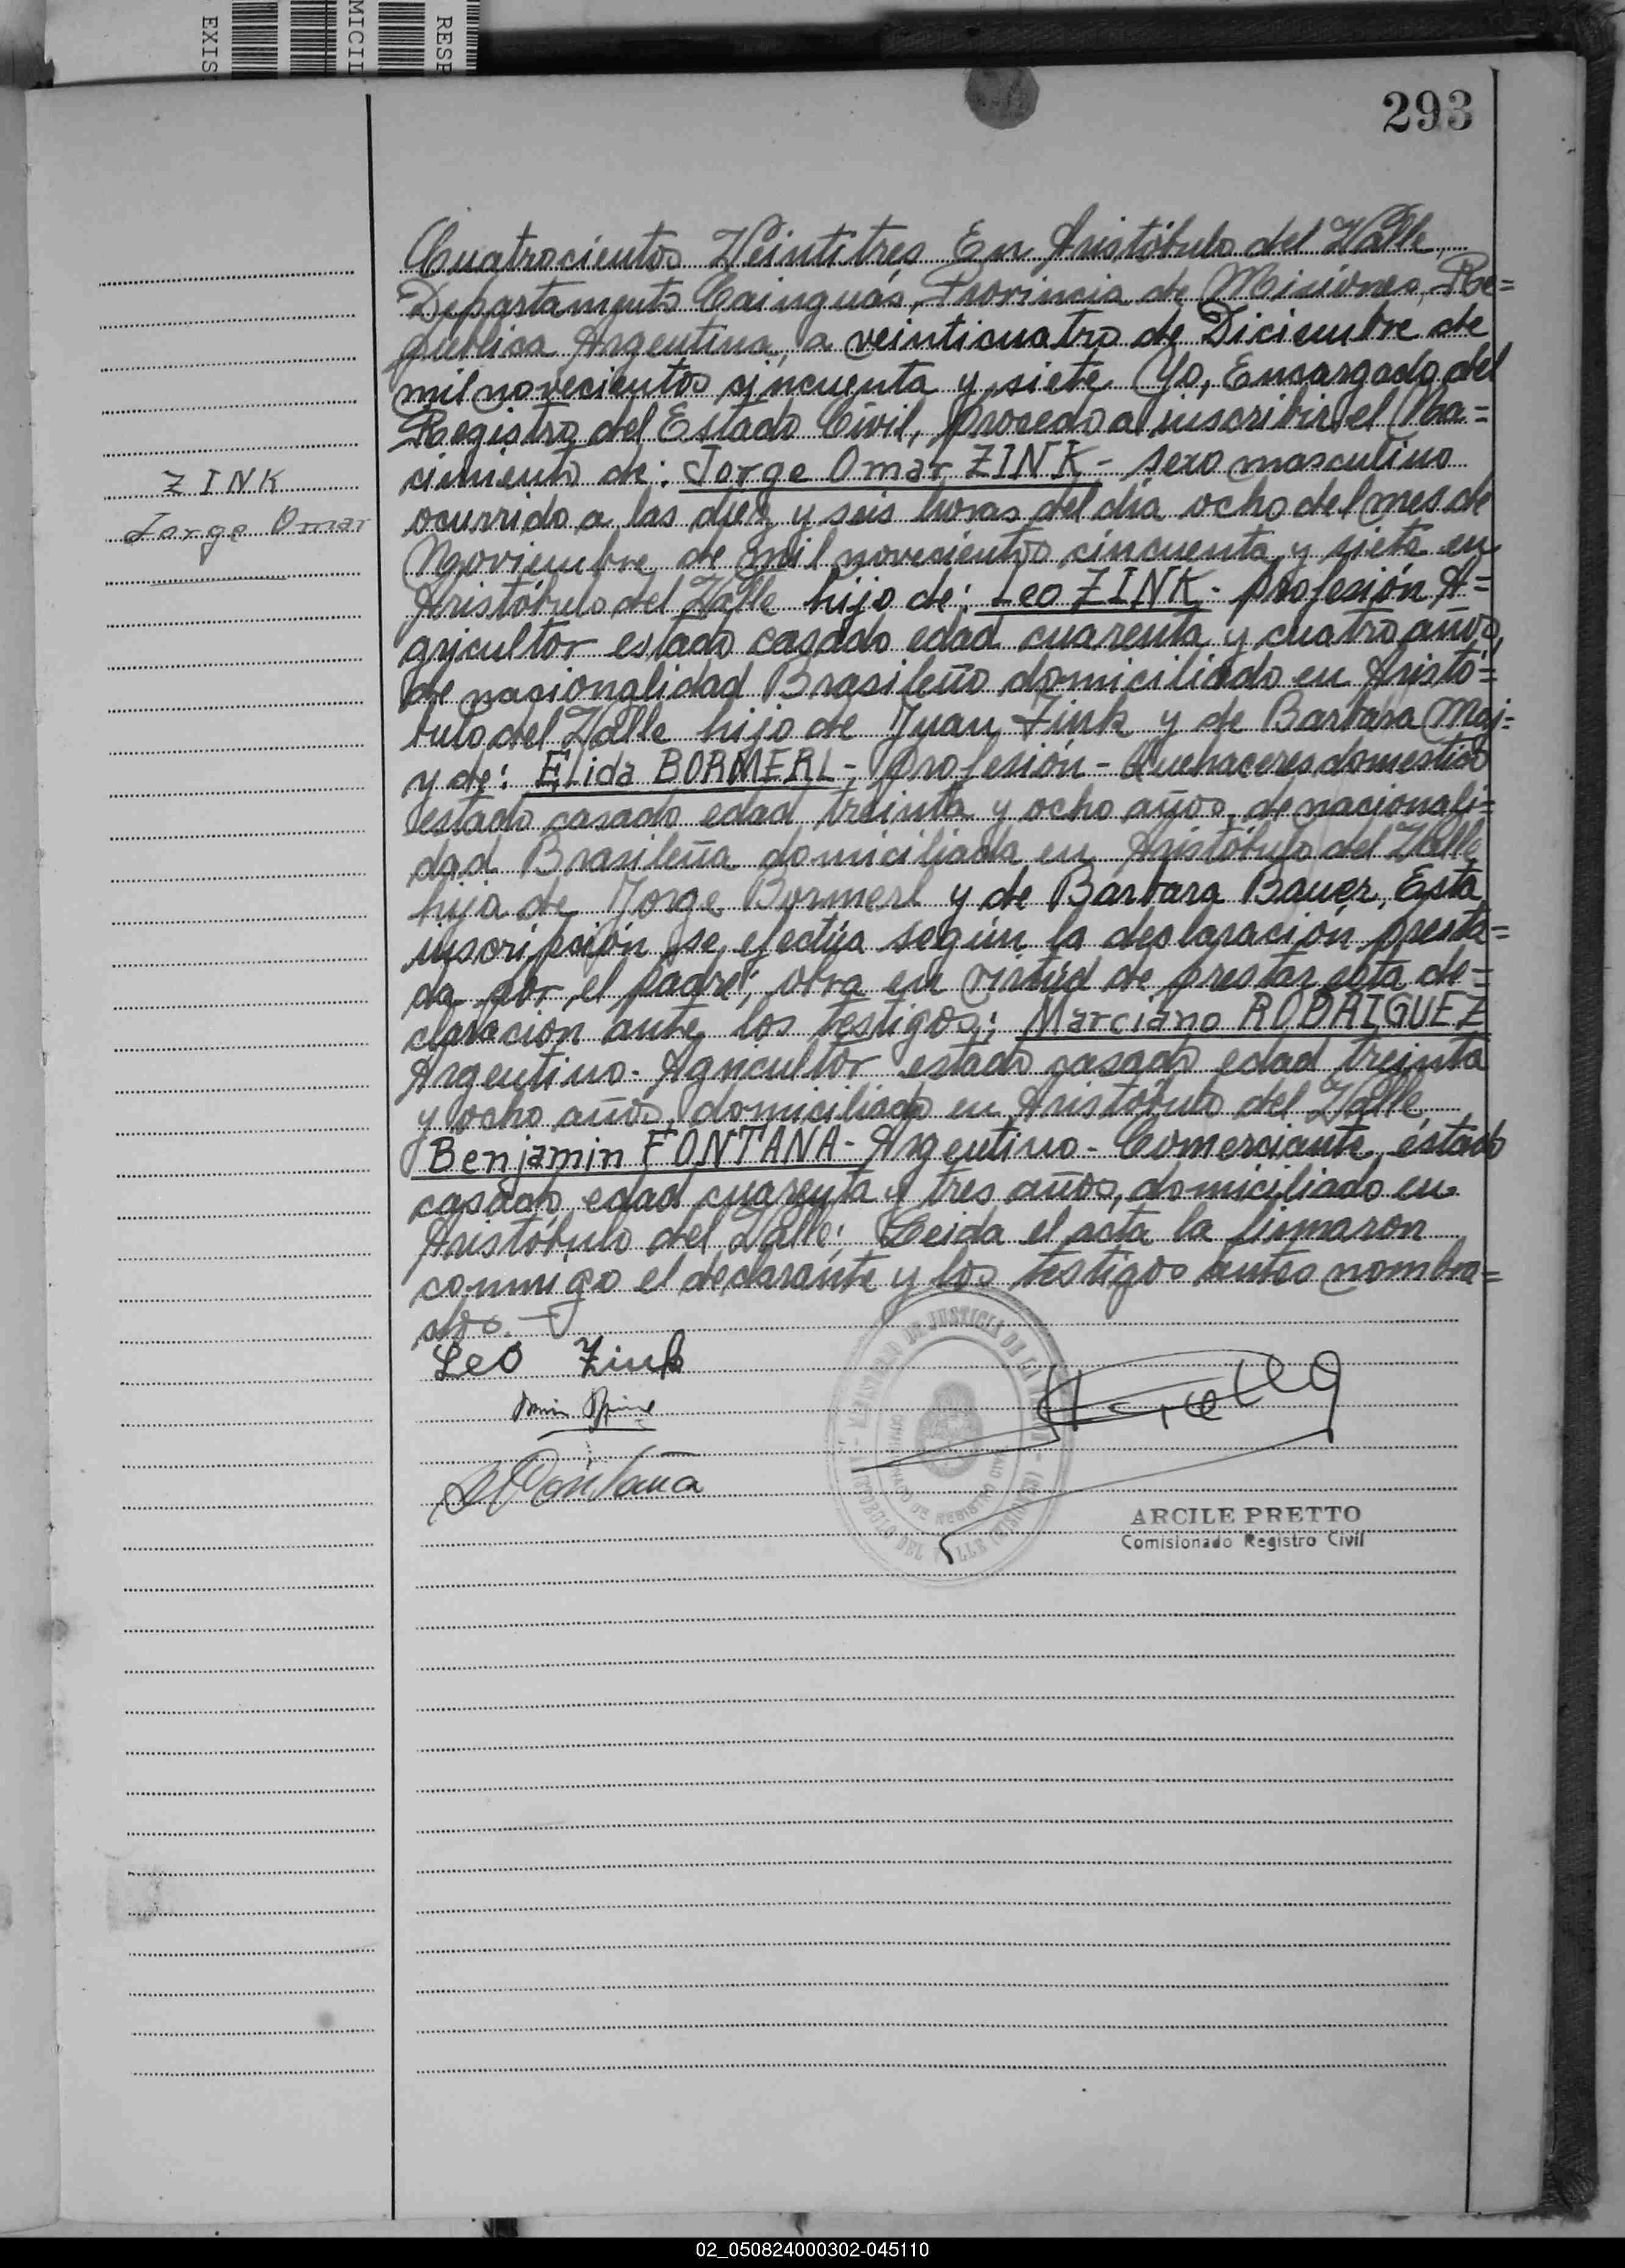 EXIS
MICIL
RESP
293
Cuatrocientos Veintitres En Aristóbulo del Valle,
Departamento Cainguás, Provincia de Misiones, Re=
publica Argentina, a veinticuatro de Diciembre de
mil novecientos cincuenta y siete Yo, Encargado del
Registro del Estado Civil, procedo a inscribir el Na=
cimiento de: Jorge Omar ZINK - sexo masculino
ZINK
Jorge Omar
ocurrido a las diez y seis horas del día ocho del mes de
Noviembre de mil novecientos cincuenta y siete en
Aristóbulo del Valle hijo de: Leo ZINK - profesión A=
gricultor estado casado edad cuarenta y cuatro años,
de nacionalidad Brasileño domiciliado en Aristó=
bulo del Valle hijo de Juan Zink y de Barbara Mai-
y de: Elida BORMERL - profesión - Quehaceres domestico
estado casado edad treinta y ocho años, de nacionali=
dad Brasileña domiciliada en Aristóbulo del Valle
hija de Jorge Bormerl y de Bárbara Bauer. Esta
inscripción se efectúa según la declaración presta=
da por el padre; obra en virtud de prestar esta de=
claracion ante los testigos; Marciano RODRIGUEZ
Argentino - Agricultor estado casado edad treinta
y ocho años, domiciliado en Aristóbulo del Valle,
Benjamin FONTANA - Argentino - Comerciante, estado
casado, edad cuarenta y tres años, domiciliado en
Aristóbulo del Valle; Leida el acta la firmaron
conmigo el declarante y los testigos antes nombra=
dos. -
Leo Zink
Fontana
DE JUSTICIA DE
REGISTRO
ARCILE PRETTO
Comisionado Registro Civil
02_050824000302-045110